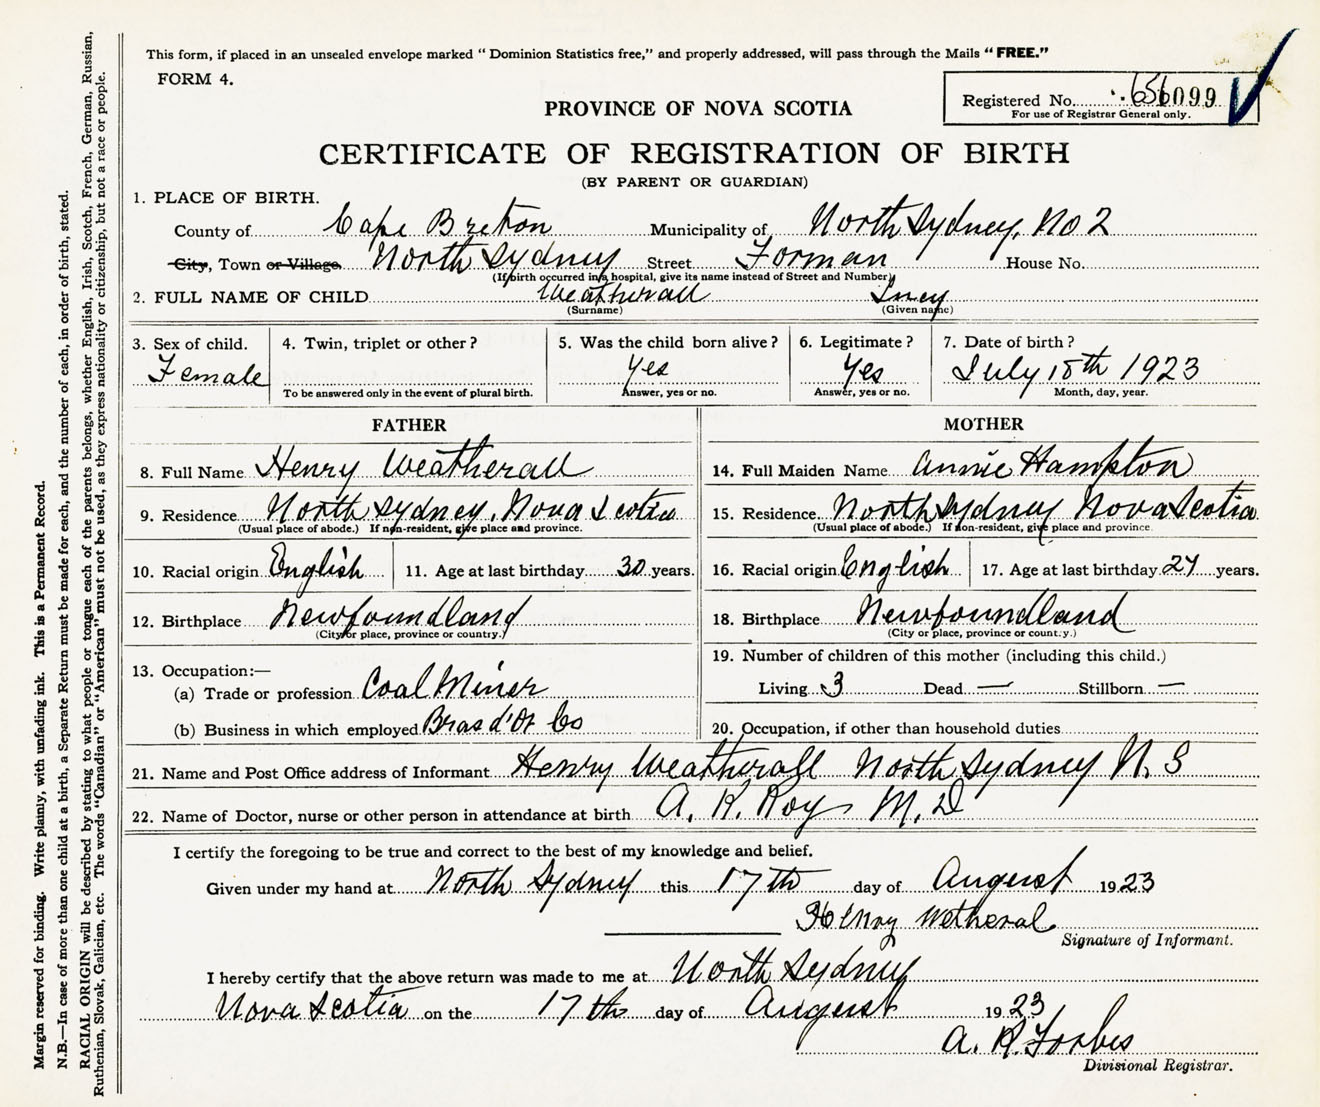 This form, if placed in an unsealed envelope marked “ Dominion Statistics free,” and properly addressed, will pass through the Mails “ FREE.”
FORM 4.
Registered No. 099
For use of Registrar General only.
PROVINCE OF NOVA SCOTIA
CERTIFICATE OF REGISTRATION OF BIRTH
(BY PARENT OR GUARDIAN)
1. PLACE OF BIRTH.
County of Cape Breton Municipality of North Sydney, No 2
City, Town or Village North Sydney Street Forman House No.
(If birth occurred in a hospital, give its name instead of Street and Number)
2. FULL NAME OF CHILD Weatherall
(Surname) (Given name)
3. Sex of child. 4. Twin, triplet or other ? 5. Was the child born alive ? 6. Legitimate ? 7. Date of birth ?
Female Yes Yes July 1923
To be answered only in the event of plural birth. Answer, yes or no. Answer, yes or no. Month, day, year.
FATHER
8. Full Name Henry Weatherall
9. Residence North Sydney, Nova Scotia
(Usual place of abode.) If non-resident, give place and province.
10. Racial origin English 11. Age at last birthday 30 years.
12. Birthplace Newfoundland
(City or place, province or country.)
13. Occupation:—
(a) Trade or profession Coal Miner
(b) Business in which employed Bras d'Or Co
MOTHER
14. Full Maiden Name Annie Hampton
15. Residence North Sydney Nova Scotia
(Usual place of abode.) If non-resident, give place and province.
16. Racial origin English 17. Age at last birthday years.
18. Birthplace Newfoundland
(City or place, province or country.)
19. Number of children of this mother (including this child.)
Living 3 Dead — Stillborn —
20. Occupation, if other than household duties
21. Name and Post Office address of Informant Henry Weatherall North Sydney N. S
22. Name of Doctor, nurse or other person in attendance at birth A. K. Roy M. D
I certify the foregoing to be true and correct to the best of my knowledge and belief.
Given under my hand at North Sydney this 17th day of August 1923
Henry Wetheral
Signature of Informant.
I hereby certify that the above return was made to me at North Sydney
Nova Scotia on the 17th day of August 1923
A. R. Forbes
Divisional Registrar.
Margin reserved for binding. Write plainly, with unfading ink. This is a Permanent Record.
N.B.—In case of more than one child at a birth, a Separate Return must be made for each, and the number of each, in order of birth, stated.
RACIAL ORIGIN will be described by stating to what people or tongue each of the parents belongs, whether English, Irish, Scotch, French, German, Russian,
Ruthenian, Slovak, Galician, etc. The words “Canadian” or “American” must not be used, as they express nationality or citizenship, but not a race or people.